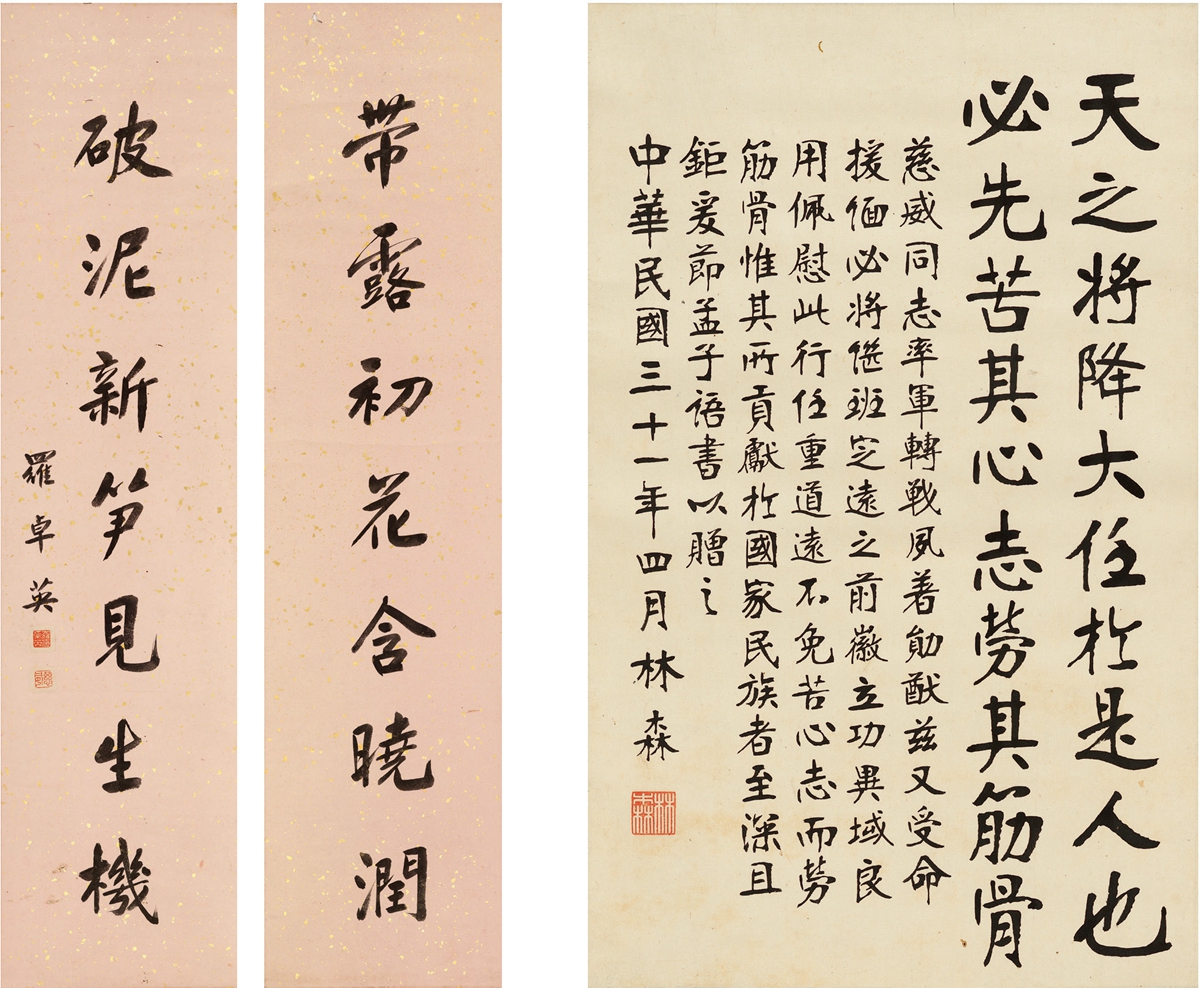 天之將降大任於是人也
必先苦其心志勞其筋骨
慈威同志率軍轉戰夙著勛猷茲又受命
援緬必將繼班定遠之前徽立功異域良
用佩慰此行任重道遠不免苦心志而勞
筋骨惟其所貢獻於國家民族者至深且
鉅爰節孟子語書以贈之
中華民國三十一年四月林森
林森
帶露初花含曉潤
破泥新笋見生機
羅卓英